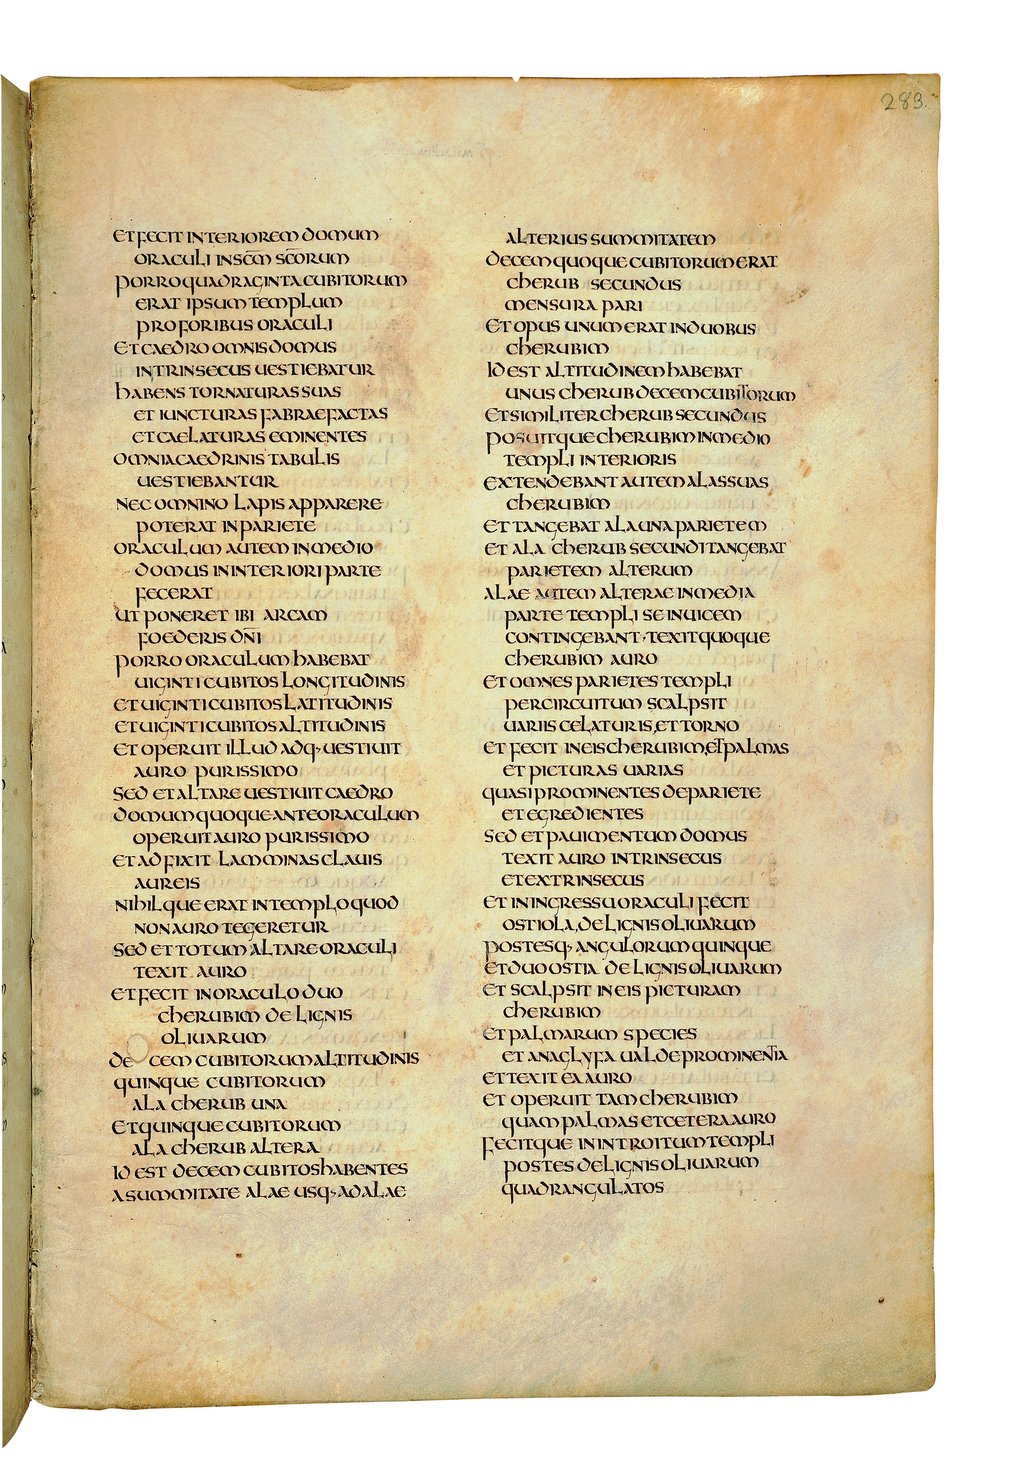 283.
ET FECIT INTERIOREM DOMUM
ORACULI IN SC̄M SC̄ORUM
PORRO QUADRAGINTA CUBITORUM
ERAT IPSUM TEMPLUM
PRO FORIBUS ORACULI
ET CAEDRO OMNIS DOMUS
INTRINSECUS UESTIEBATUR
HABENS TORNATURAS SUAS
ET IUNCTURAS FABRAEFACTAS
ET CAELATURAS EMINENTES
OMNIA CAEDRINIS TABULIS
UESTIEBANTUR
NEC OMNINO LAPIS APPARERE
POTERAT IN PARIETE
ORACULUM AUTEM IN MEDIO
DOMUS IN INTERIORI PARTE
FECERAT
UT PONERET IBI ARCAM
FOEDERIS DN̄I
PORRO ORACULUM HABEBAT
UIGINTI CUBITOS LONGITUDINIS
ET UIGINTI CUBITOS LATITUDINIS
ET UIGINTI CUBITOS ALTITUDINIS
ET OPERUIT ILLUD ADQ· UESTIUIT
AURO PURISSIMO
SED ET ALTARE UESTIUIT CAEDRO
DOMUM QUOQUE ANTE ORACULUM
OPERUIT AURO PURISSIMO
ET ADFIXIT LAMMINAS CLAUIS
AUREIS
NIHILQUE ERAT IN TEMPLO QUOD
NON AURO TEGERETUR
SED ET TOTUM ALTARE ORACULI
TEXIT AURO
ET FECIT IN ORACULO DUO
CHERUBIM DE LIGNIS
OLIUARUM
DECEM CUBITORUM ALTITUDINIS
QUINQUE CUBITORUM
ALA CHERUB UNA
ET QUINQUE CUBITORUM
ALA CHERUB ALTERA
ID EST DECEM CUBITOS HABENTES
A SUMMITATE ALAE USQ· AD ALAE
ALTERIUS SUMMITATEM
DECEM QUOQUE CUBITORUM ERAT
CHERUB SECUNDUS
MENSURA PARI
ET OPUS UNUM ERAT IN DUOBUS
CHERUBIM
ID EST ALTITUDINEM HABEBAT
UNUS CHERUB DECEM CUBITORUM
ET SIMILITER CHERUB SECUNDUS
POSUITQUE CHERUBIM IN MEDIO
TEMPLI INTERIORIS
EXTENDEBANT AUTEM ALAS SUAS
CHERUBIM
ET TANGEBAT ALA UNA PARIETEM
ET ALA CHERUB SECUNDI TANGEBAT
PARIETEM ALTERUM
ALAE AUTEM ALTERAE IN MEDIA
PARTE TEMPLI SE INUICEM
CONTINGEBANT · TEXIT QUOQUE
CHERUBIM AURO
ET OMNES PARIETES TEMPLI
PER CIRCUITUM SCALPSIT
UARIIS CELATURIS, ET TORNO
ET FECIT IN EIS CHERUBIM, ET PALMAS
ET PICTURAS UARIAS
QUASI PROMINENTES DE PARIETE
ET EGREDIENTES
SED ET PAUIMENTUM DOMUS
TEXIT AURO INTRINSECUS
ET EXTRINSECUS
ET IN INGRESSU ORACULI FECIT
OSTIOLA, DE LIGNIS OLIUARUM
POSTESQ· ANGULORUM QUINQUE
ET DUO OSTIA DE LIGNIS OLIUARUM
ET SCALPSIT IN EIS PICTURAM
CHERUBIM
ET PALMARUM SPECIES
ET ANAGLYFA UALDE PROMINENTIA
ET TEXIT EA AURO
ET OPERUIT TAM CHERUBIM
QUAM PALMAS ET CETERA AURO
FECITQUE IN INTROITUM TEMPLI
POSTES DE LIGNIS OLIUARUM
QUADRANGULATOS